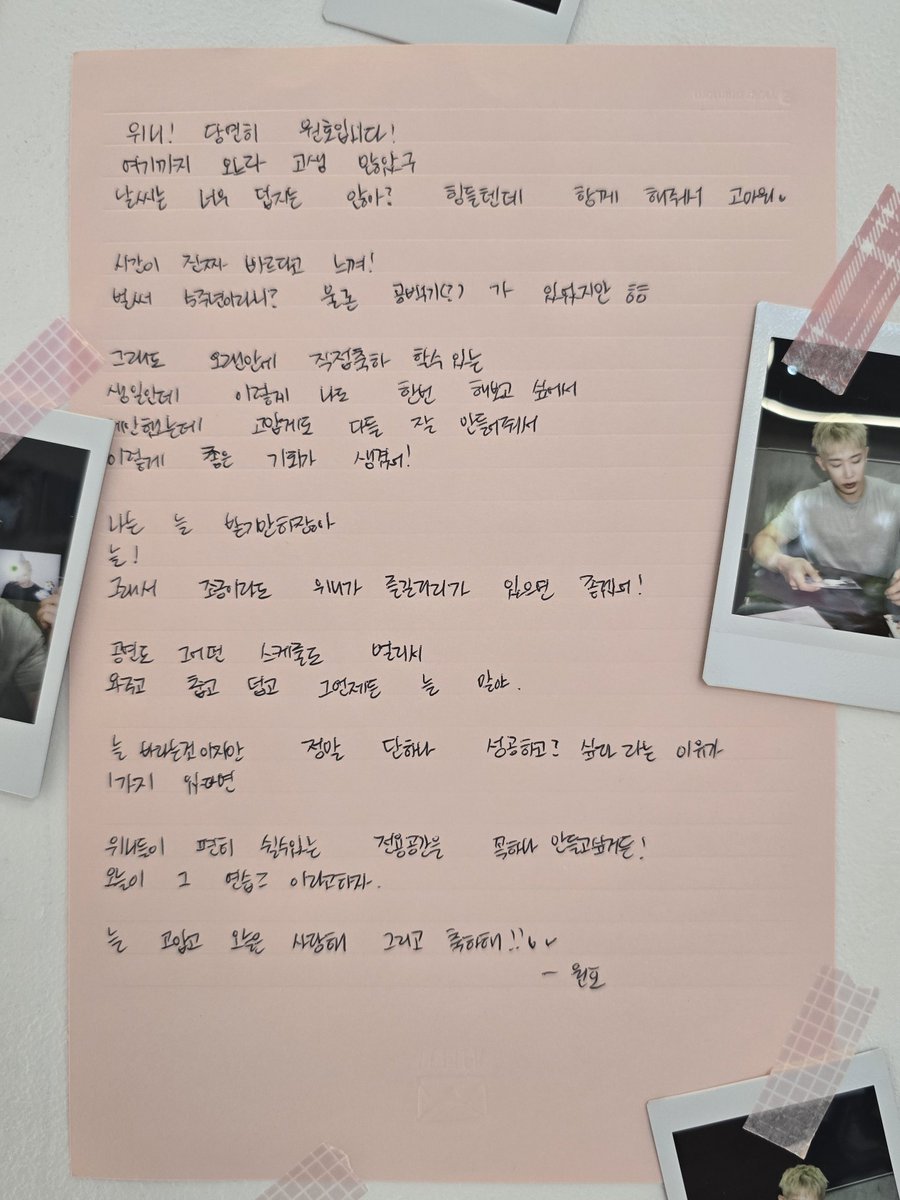 위니! 당연히 원호입니다!
여기까지 오느라 고생 많았구
날씨는 너무 덥지는 않아? 힘들텐데 함께 해줘서 고마워
시간이 진짜 빠르다고 느껴!
벌써 5주년이라니? 물론 공백기(?)가 있었지만 ㅎㅎ
그래도 오랜만에 직접축하 할수있는
생일인데 이렇게 나도 한번 해보고 싶어서
제안했는데 고맙게도 다들 잘 만들어줘서
이렇게 좋은 기회가 생겼어!
나는 늘 받기만하잖아
늘!
그래서 조금이라도 위니가 즐길거리가 있으면 좋겠어!
공연도 그어떤 스케줄도 멀리서
와주고 춥고 덥고 그언제든 늘 말야.
늘 바라는것이지만 정말 단하나 성공하고 싶다 라는 이유가
1가지 있다면
위니들이 편히 쉴수있는 전용공간을 꼭하나 만들고싶거든!
오늘이 그 연습 이라고하자.
늘 고맙고 오늘은 사랑해 그리고 축하해!!
- 원호